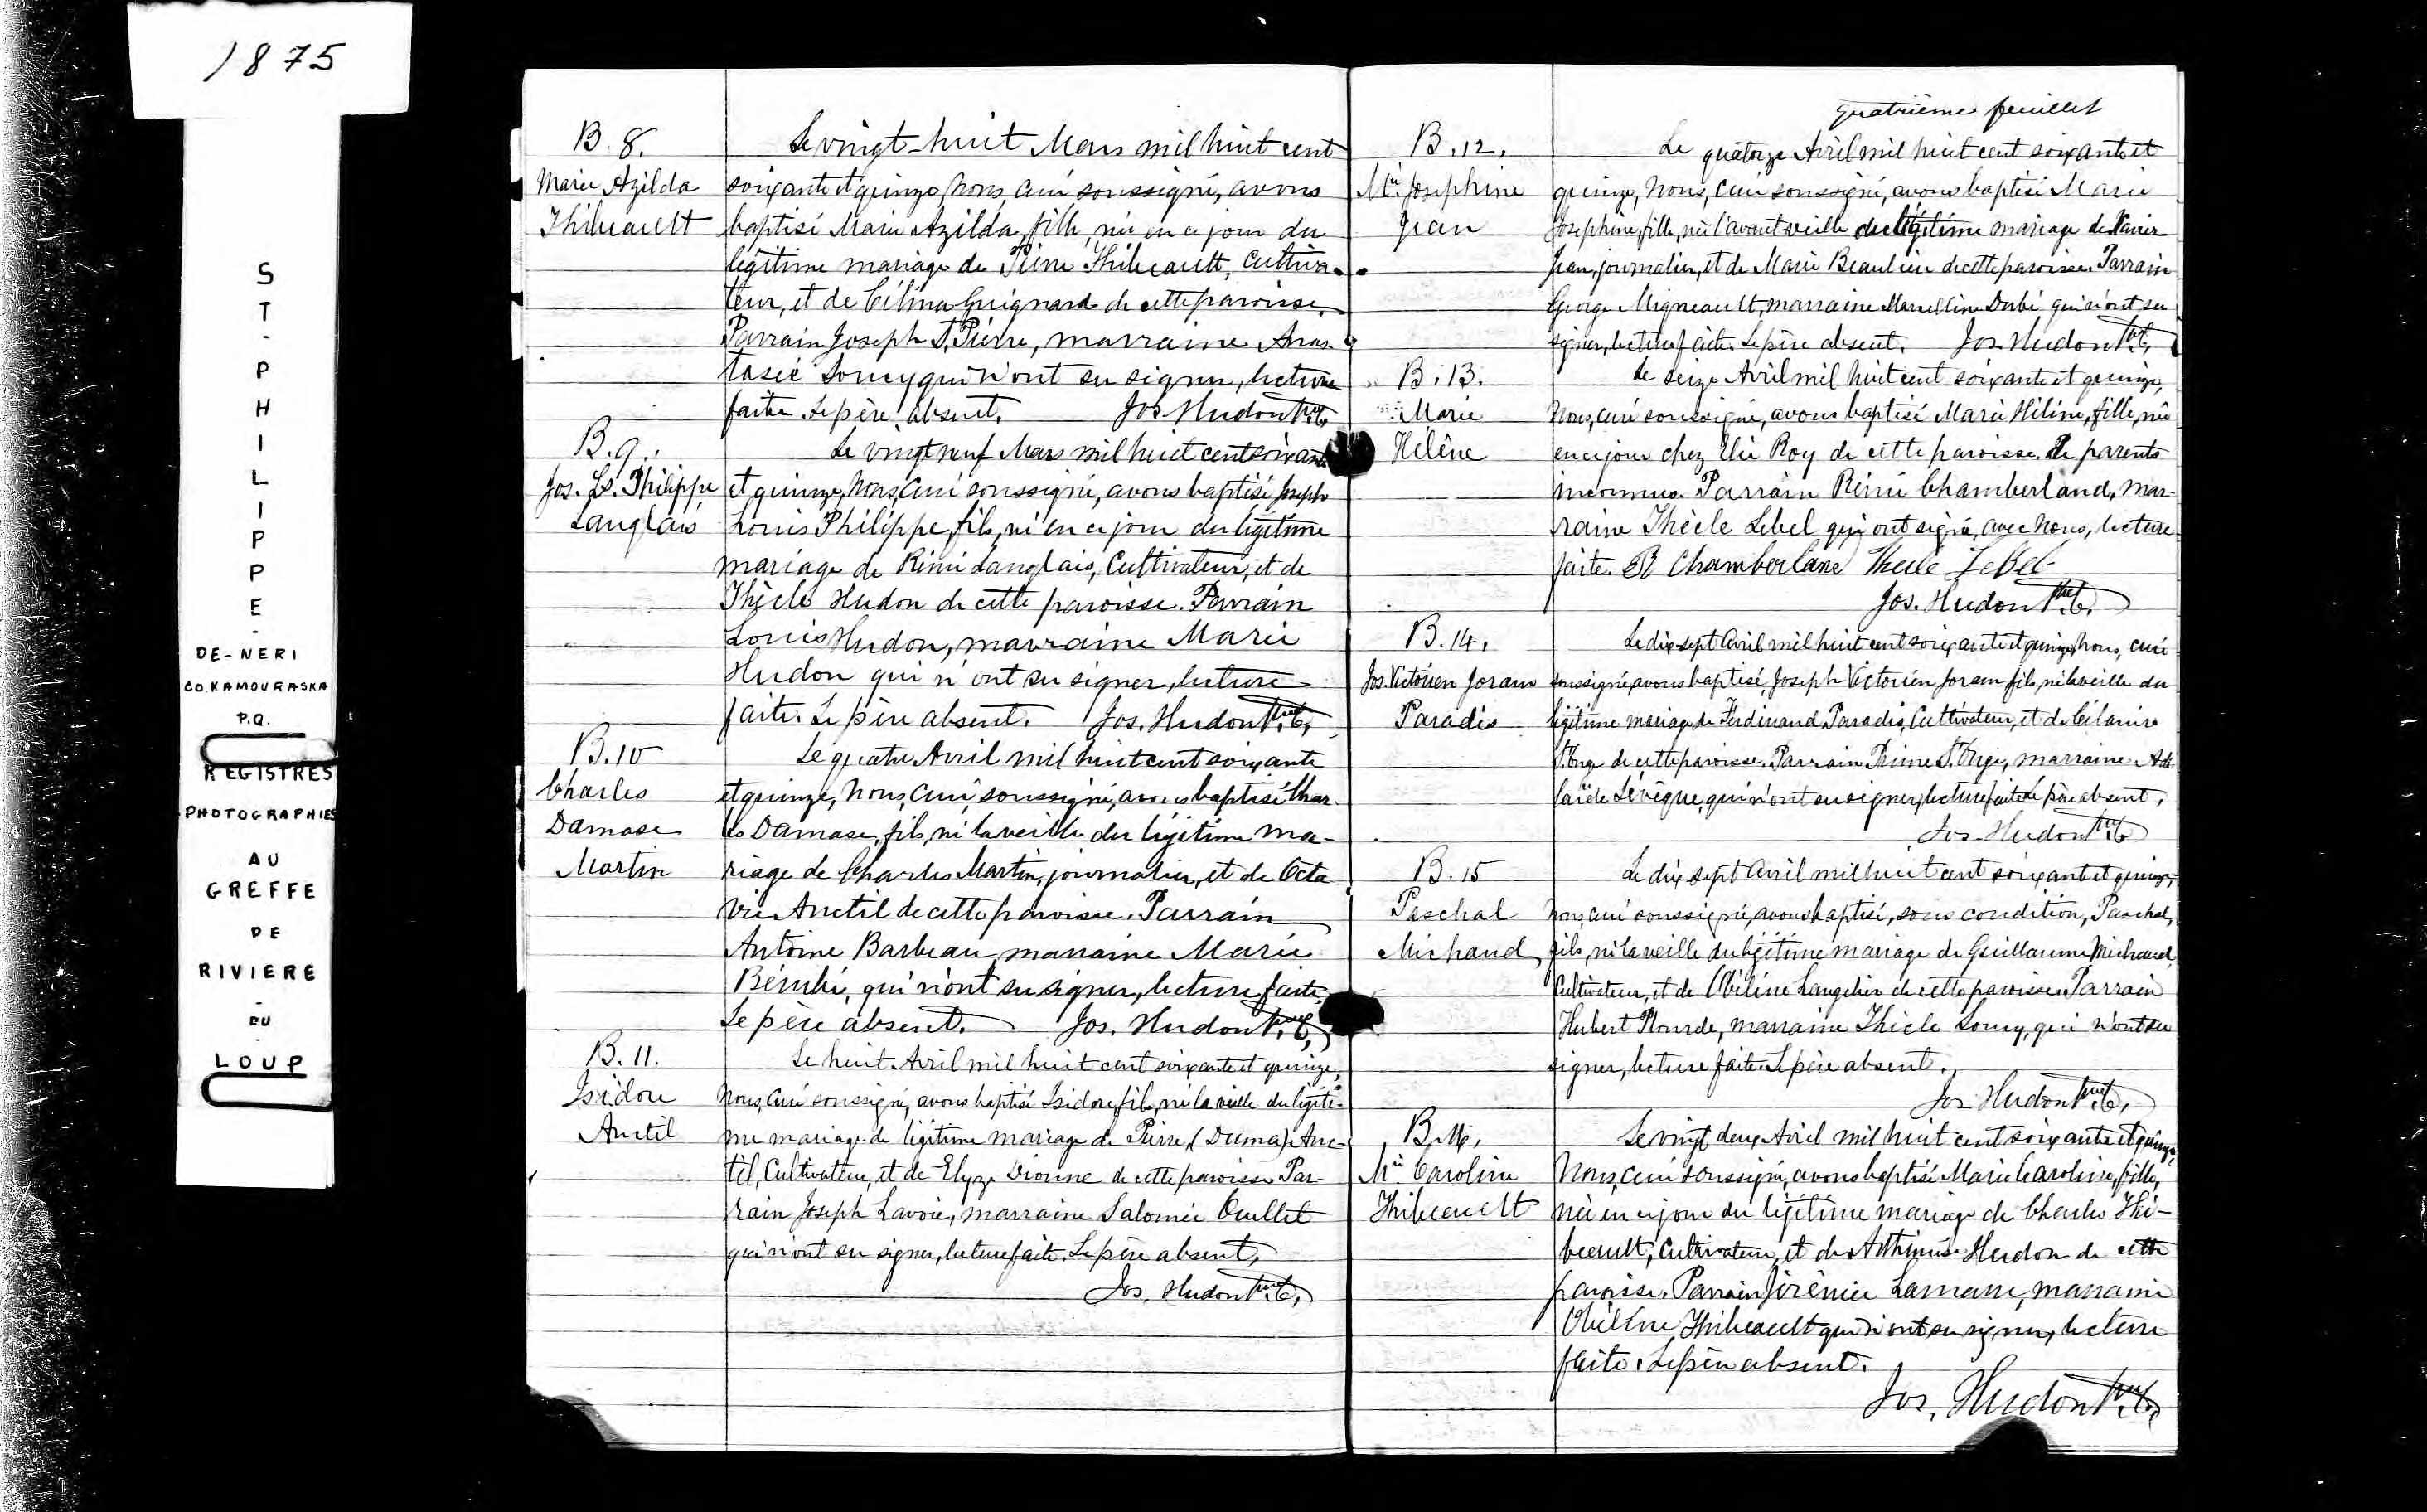 1875
ST-PHILIPPE-
DE-NERI
CO. KAMOURASKA
P.Q.
REGISTRES
PHOTOGRAPHIES
AU
GREFFE
DE
RIVIERE
-
DU
-
LOUP
B. 8.
Marie Azilda
Thibeault
Le vingt-huit Mars mil huit cent
soixante et quinze, Nous, curé soussigné, avons
baptisé Marie Azilda, fille, née en ce jour du
légitime mariage de Pierre Thibeault, Cultiva-
teur, et de Célina Guignard de cette paroisse.
Parrain Joseph St. Pierre, marraine Anas-
tasie Soucy qui n'ont su signer, lecture
faite. Le père absent. Jos. Hudon Ptre C.
B. 9.
Jos. Ls. Philippe
Langlais
Le vingt neuf Mars mil huit cent soixante
et quinze, Nous, Curé soussigné, avons baptisé Joseph
Louis Philippe, fils, né en ce jour du légitime
mariage de Rémi Langlais, Cultivateur, et de
Thècle Hudon de cette paroisse. Parrain
Louis Hudon, marraine Marie
Hudon qui n'ont su signer, lecture
faite. Le père absent. Jos. Hudon Ptre C.
B. 10
Charles
Damase
Martin
Le quatre Avril mil huit cent soixante
et quinze, Nous, Curé, soussigné, avons baptisé Char-
les Damase, fils, né la veille du légitime ma-
riage de Charles Martin, journalier, et de Octa
vie Anctil de cette paroisse. Parrain
Antoine Barbeau, marraine Marie
Bérubé, qui n'ont su signer, lecture faite.
Le père absent. Jos. Hudon Ptre C.
B. 11.
Isidore
Anctil
Le huit Avril mil huit cent soixante et quinze,
Nous, Curé soussigné, avons baptisé Isidore, fils, né la veille du légiti-
me mariage de légitime mariage de Pierre (Duma) Anc-
til, Cultivateur, et de Elyze Dionne de cette paroisse Par-
rain Joseph Lavoie, marraine Salomée Ouellet
qui n'ont su signer, lecture faite. Le père absent.
Jos. Hudon Ptre C.
quatrième feuillet
B. 12.
Mie. Josephine
Jean
Le quatorze Avril mil huit cent soixante et
quinze, Nous, Curé soussigné, avons baptisé Marie
Josephine, fille, née l'avant veille du légitime mariage de Xavier
Jean, journalier, et de Marie Beaulieu de cette paroisse. Parrain
George Migneault, marraine Marcelline Dubé qui n'ont su
signer, lecture faite. Le père absent. Jos. Hudon Ptre C.
B. 13.
Marie
Hélène
Le seize Avril mil huit cent soixante et quinze,
Nous, curé soussigné, avons baptisé Marie Hélène, fille, née
en ce jour chez Elie Roy de cette paroisse de parents
inconnus. Parrain Rémi Chamberland, mar-
raine Thècle Lebel qui ont signé avec Nous, lecture
faite. R Chamberlane Thecle Lebel
Jos. Hudon Ptre C.
B. 14.
Jos. Victorien Joram
Paradis
Le dix-sept Avril mil huit cent soixante et quinze, Nous, curé
soussigné, avons baptisé Joseph Victorien Joram, fils, né la veille du
légitime mariage de Ferdinand Paradis, Cultivateur, et de Célanire
St. Onge de cette paroisse. Parrain Prime St. Onge, marraine Adé
laïde Lévêque, qui n'ont su signer, lecture faite. Le père absent.
Jos. Hudon Ptre C
B. 15
Paschal
Michaud
Le dix sept Avril mil huit cent soixante et quinze,
Nous, curé soussigné, avons baptisé, sous condition, Paschal,
fils, né la veille du légitime mariage de Guillaume Michaud,
Cultivateur, et de Obéline Langelier de cette paroisse. Parrain
Hubert Plourde, marraine Thècle Soucy, qui n'ont su
signer, lecture faite. Le père absent.
Jos. Hudon Ptre C.
B. 16.
Mie Caroline
Thibeault
Le vingt deux Avril mil huit cent soixante et quinze,
Nous, Curé soussigné, avons baptisé Marie Caroline, fille,
née en ce jour du légitime mariage de Charles Thi-
beault, Cultivateur, et de Arthémise Hudon de cette
paroisse. Parrain Jérémie Lamarre, marraine
Obéline Thibeault qui n'ont su signer, lecture
faite. Le père absent.
Jos. Hudon Ptre C.